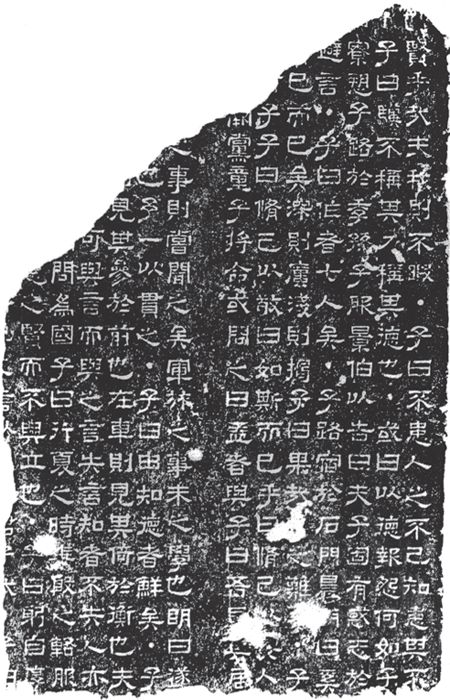 賢乎我夫我則不暇·子曰不患人之不己知患其不
子曰驥不稱其力稱其德也·或曰以德報怨何如子
寮愬子路於季孫子服景伯以告曰夫子固有惑志於
避言·子曰作者七人矣·子路宿於石門晨門曰奚
已而已矣深則厲淺則揭子曰果哉之難·子
子子曰脩己以敬曰如斯而已乎曰脩己以人
闕黨童子將命或問之曰益者與子曰吾見居
事則嘗聞之矣軍旅之事未之學也明日遂
也予一以貫之·子曰由知德者鮮矣·子
見其參於前也在車則見其倚於衡也夫
可與言而與之言失言知者不失人亦
問為國子曰行夏之時乘殷之輅服
之賢而不與立也·子曰躬自厚